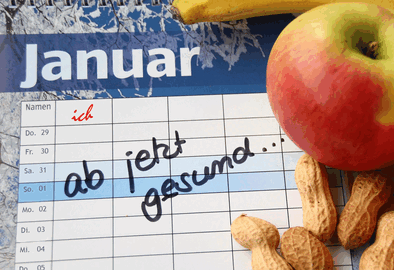 Januar
Namen ich
Do. 29
Fr. 30
Sa. 31
So. 01
ab jetzt
gesund...
Mo. 02
Di. 03
Mi. 04
Do. 05